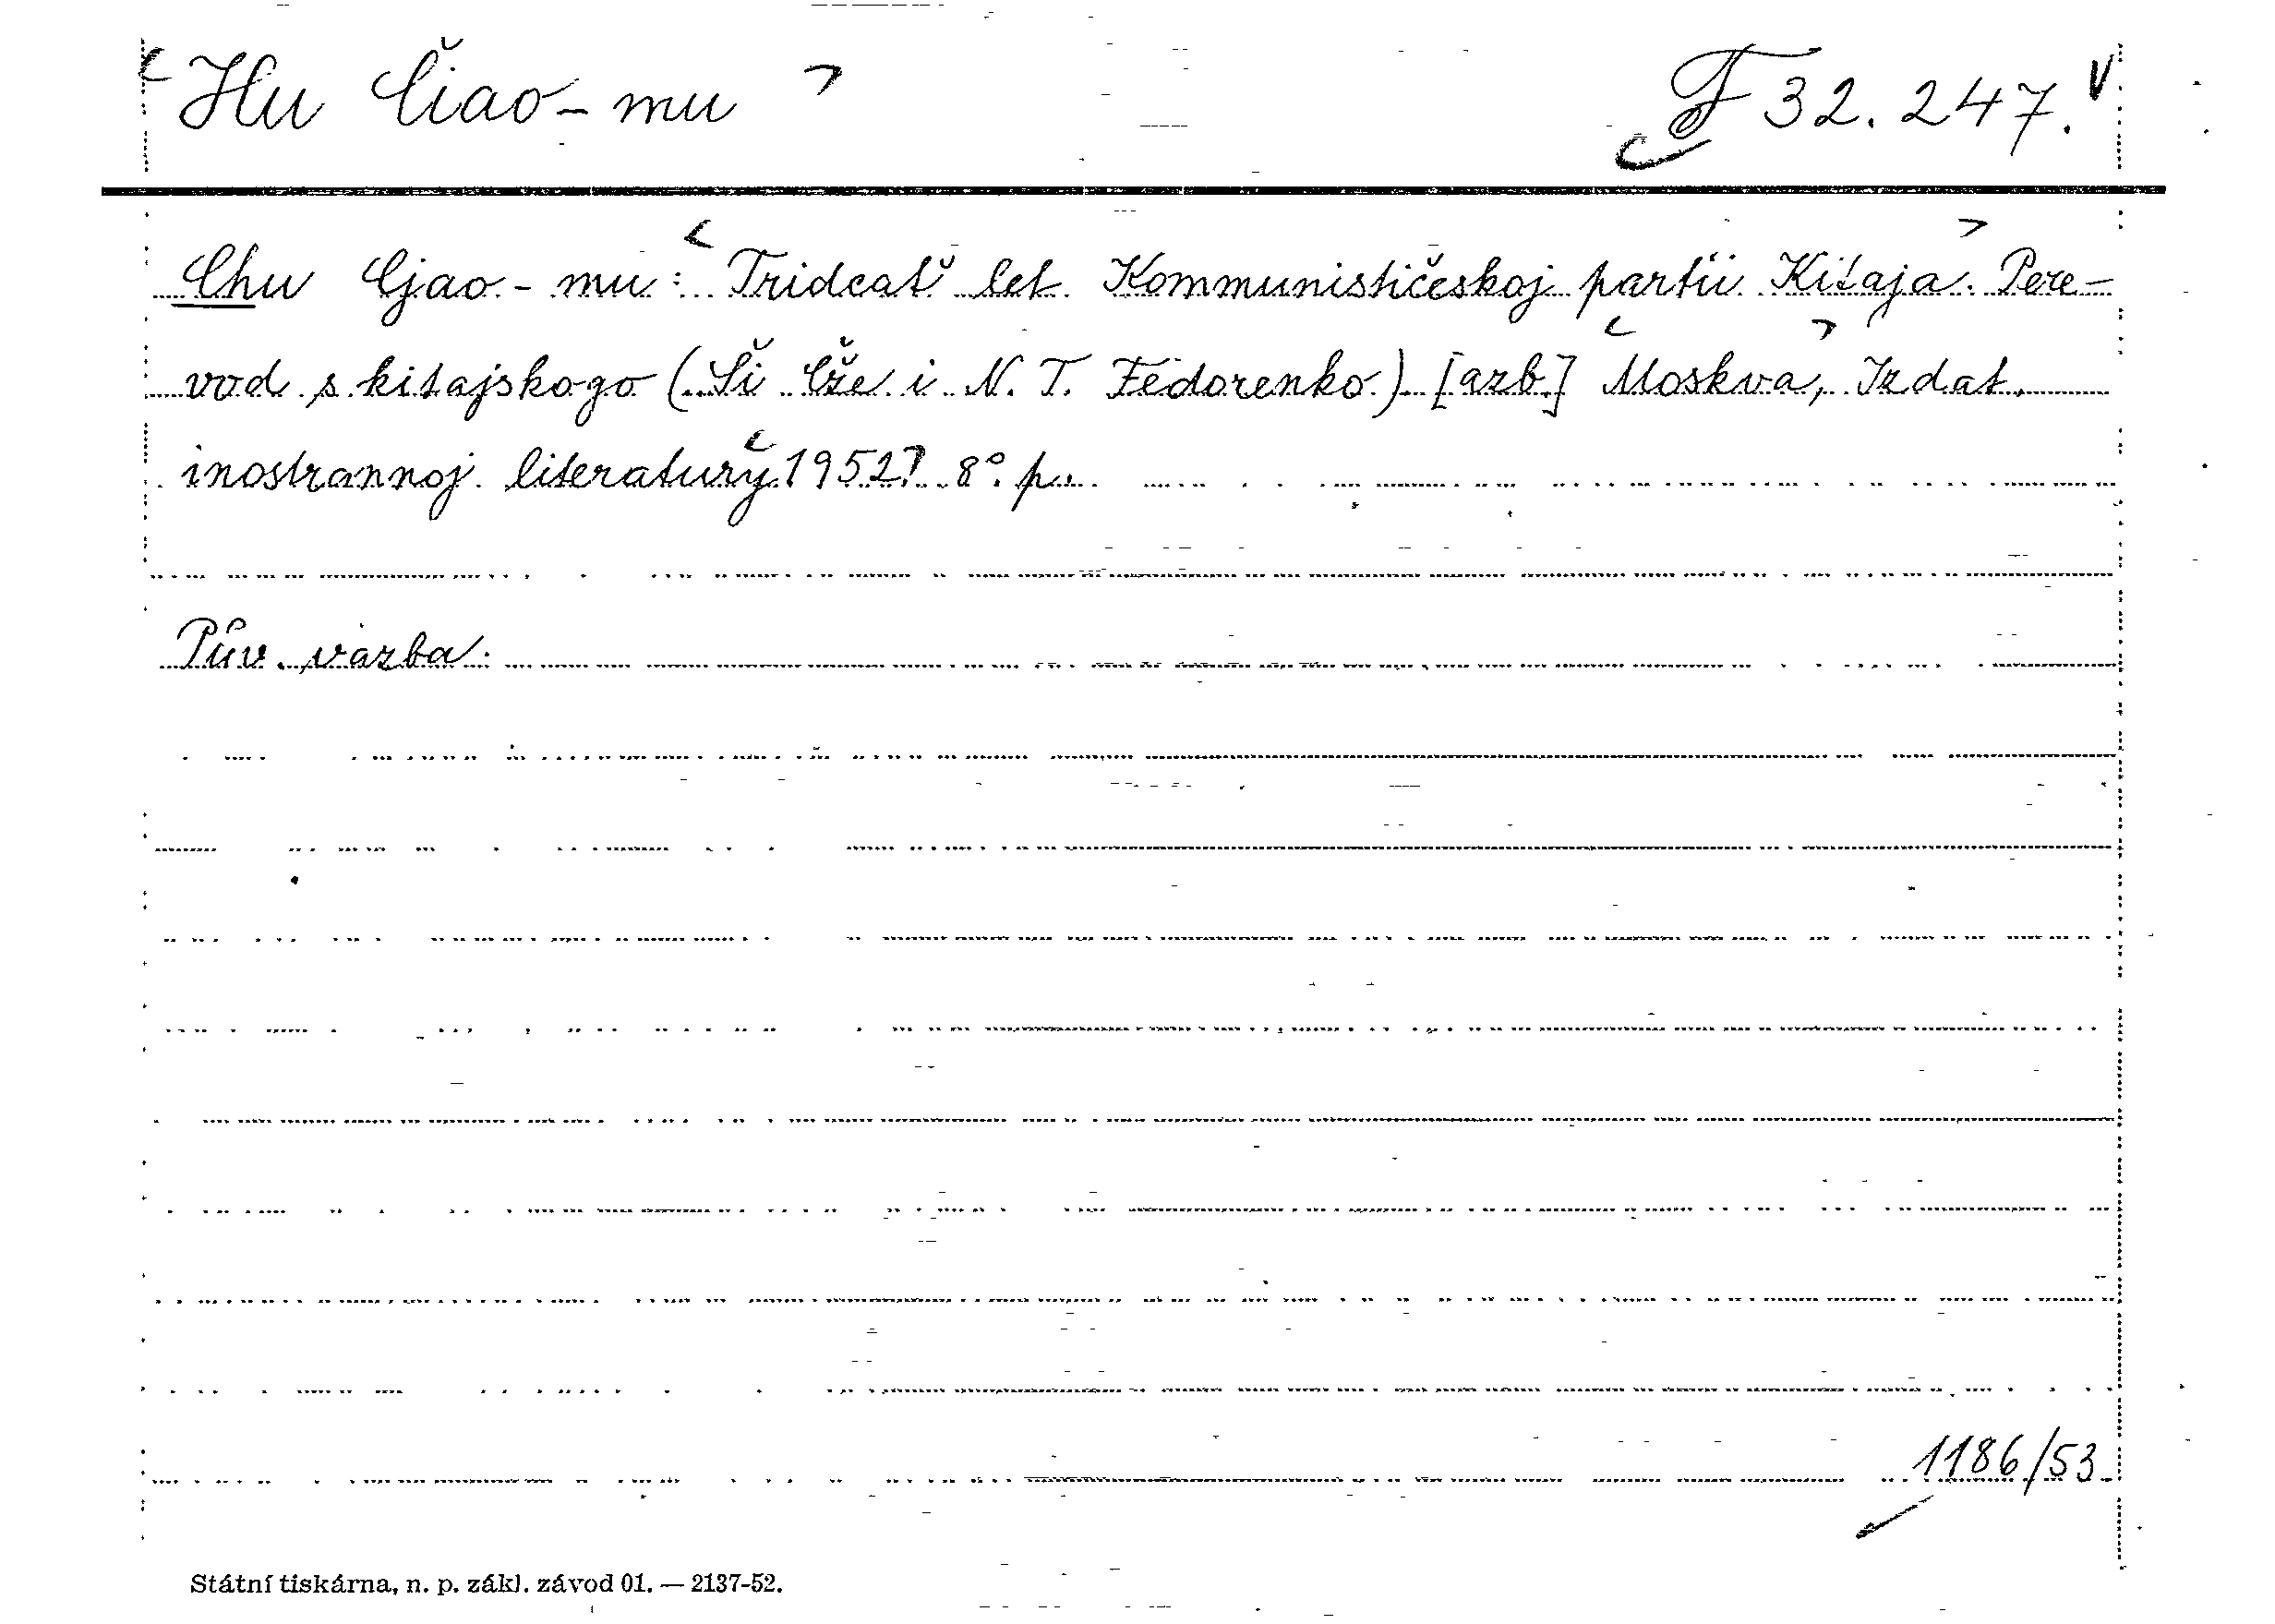 Hu Čiao-mu F 32.247.
Chu Cjao-mu: Tridcať let Kommunističeskoj partii Kitaja. Pere-
vod s kitajskogo (Ši Čže i N. T. Fedorenko.) [azb.] Moskva, Izdat.
inostrannoj literatury 1952. 8°. p..
Pův. vazba.
1186/53
Státní tiskárna, n. p. zákl. závod 01. — 2137-52.